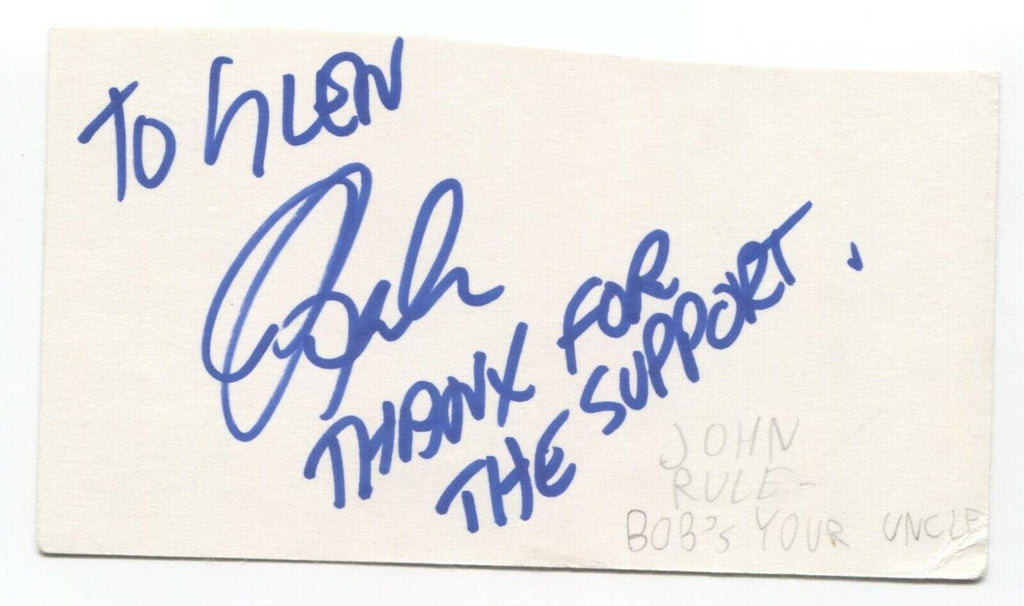 TO GLEN
THANX FOR
THE SUPPORT.
JOHN
RULE-
BOB'S YOUR UNCLE